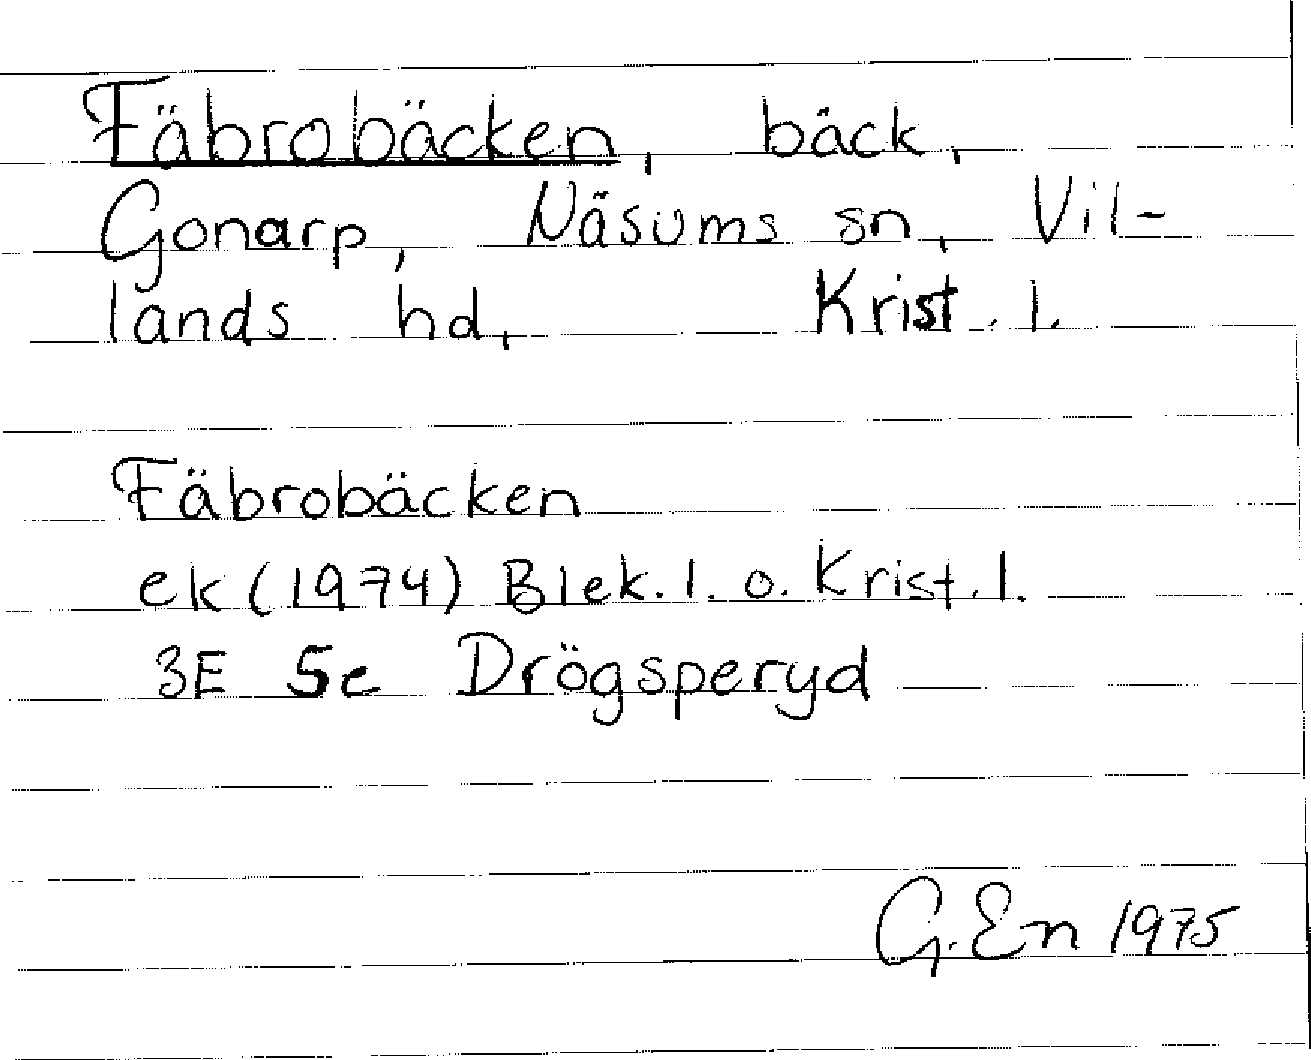 Fäbrobäcken, bäck,
Gonarp, Näsums sn, Vil-
lands hd, Krist. l.
Fäbrobäcken
ek (1974) Blek. l. o. Krist. l.
3E 5e Drögsperyd
G. En 1975